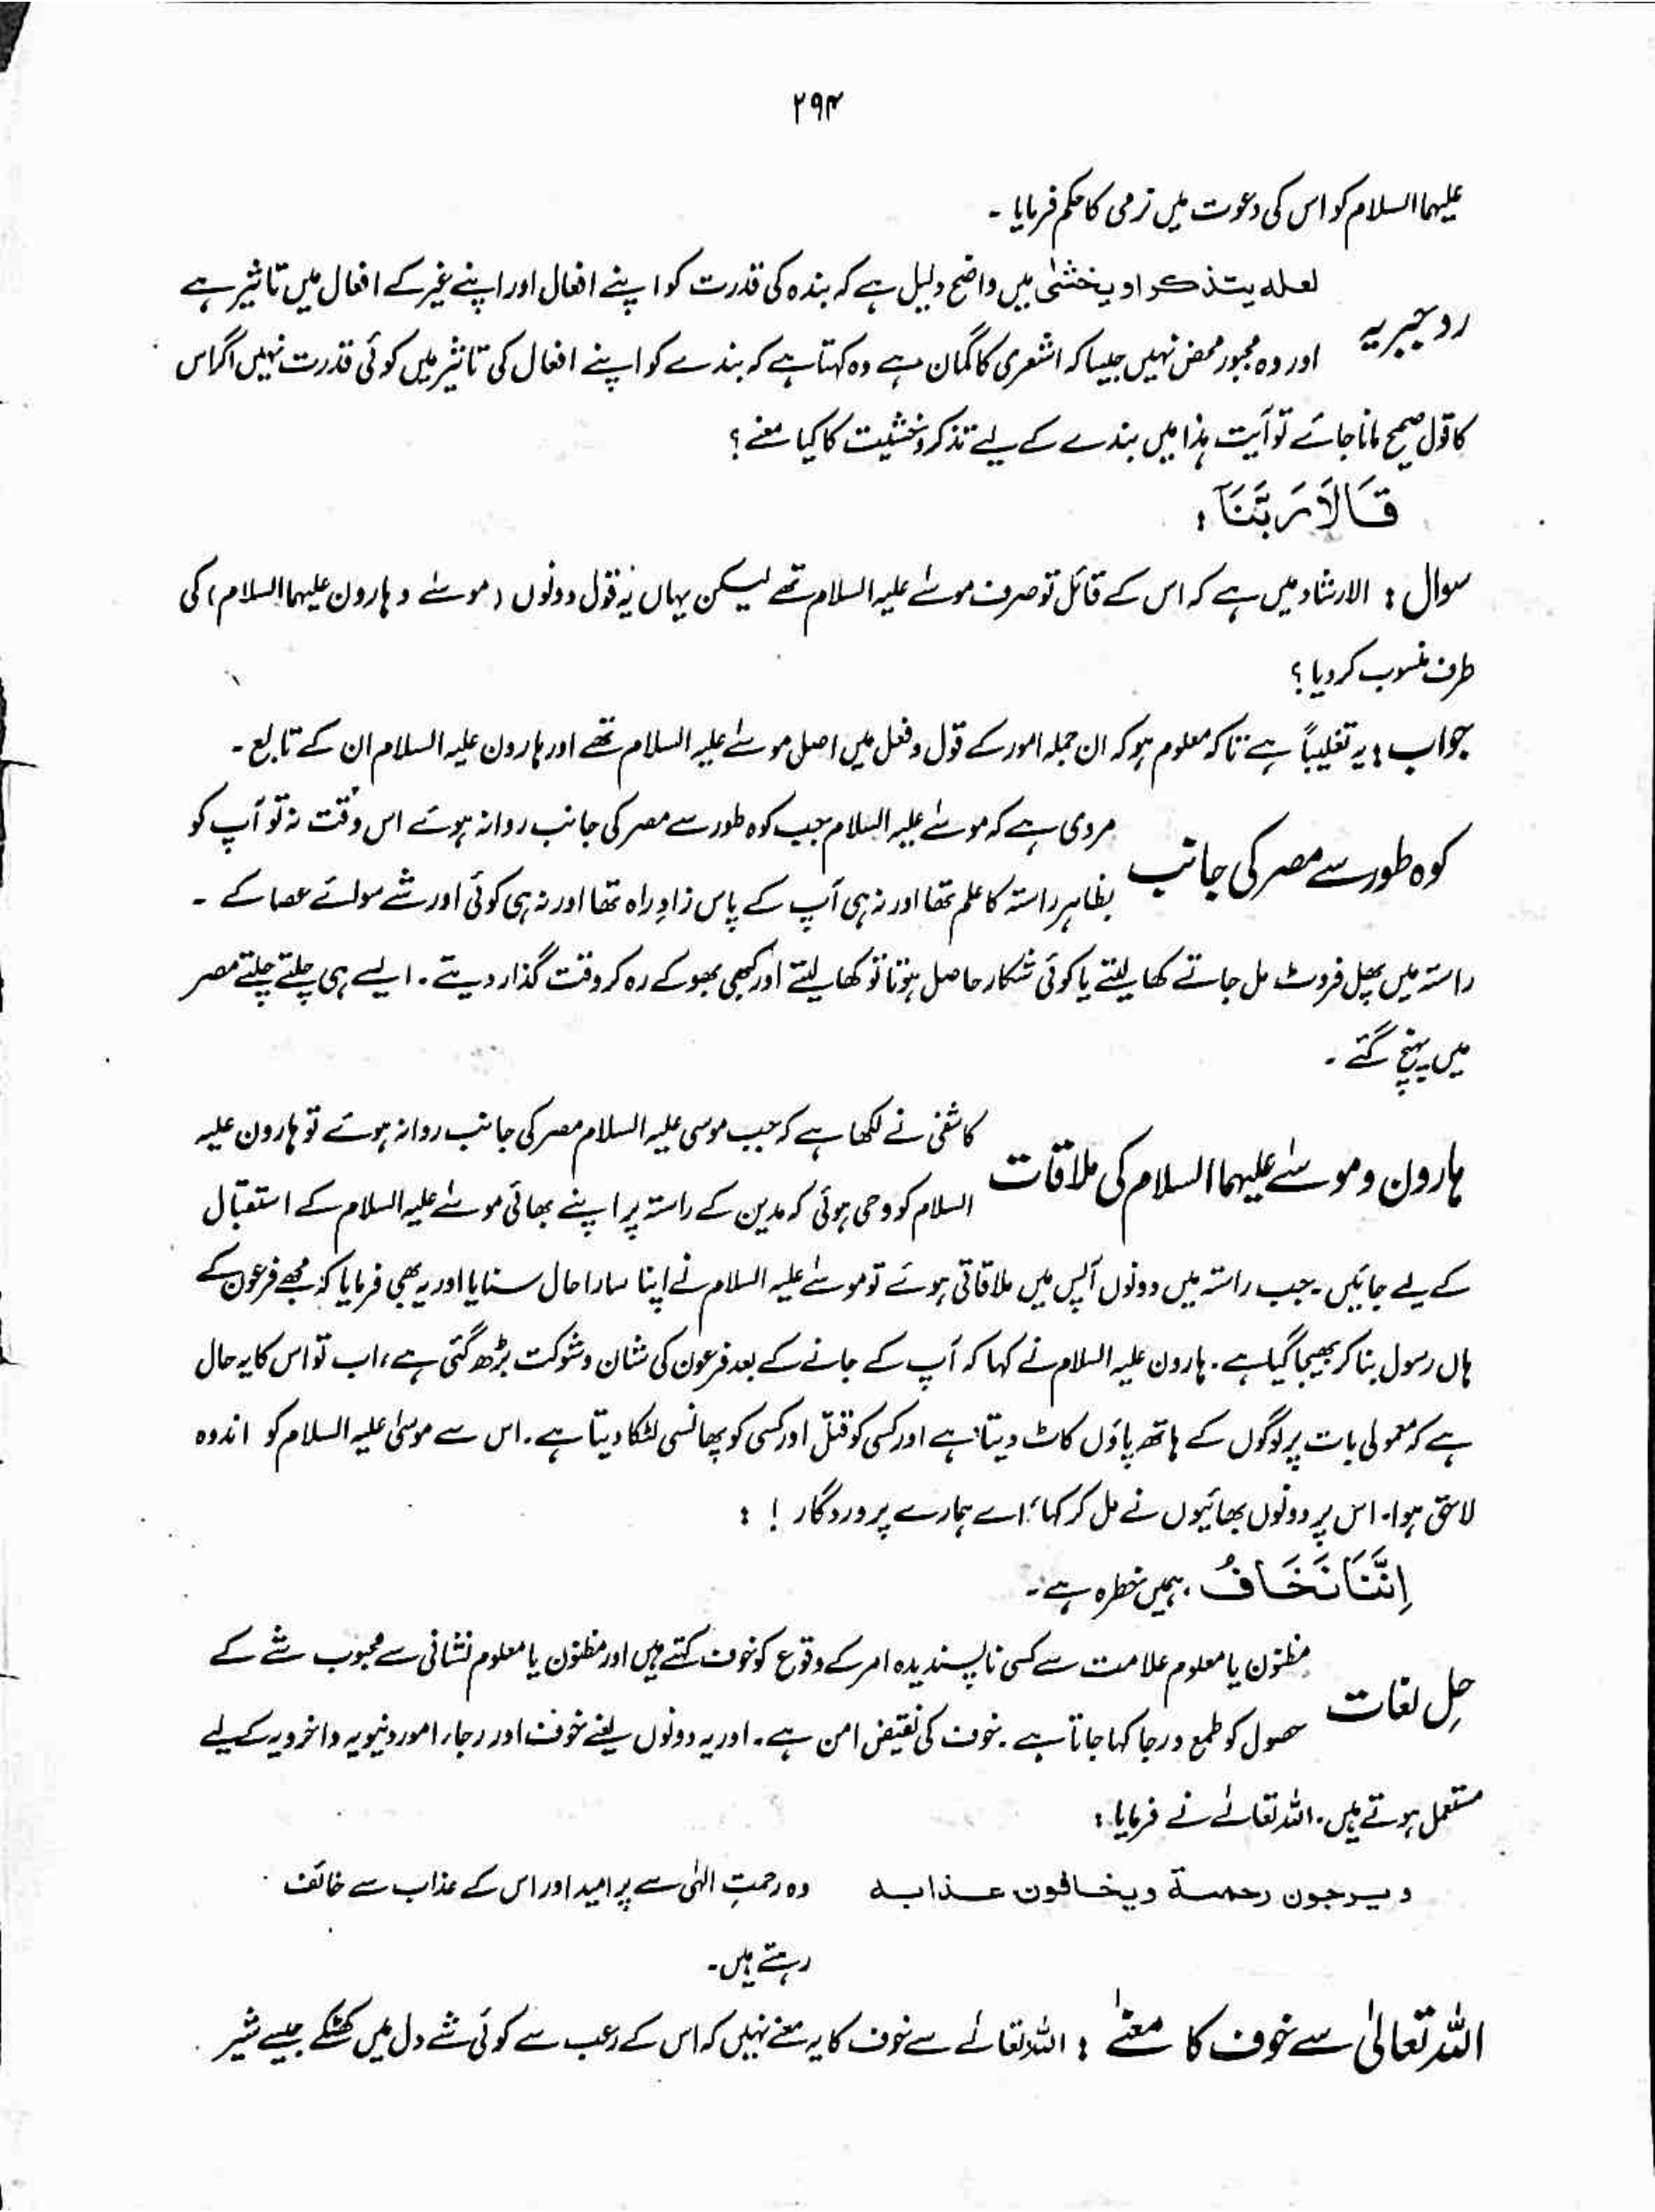 ۲۹۴
علیہما السلام کو اس کی دعوت میں نرمی کا حکم فرمایا ۔
رد جبریہ
لعلہ یتذکر او یخشٰی میں واضح دلیل ہے کہ بندہ کی قدرت کو اپنے افعال اور اپنے غیر کے افعال میں تاثیر ہے
اور وہ مجبور محض نہیں جیسا کہ اشعری کا گمان ہے وہ کہتا ہے کہ بندے کو اپنے افعال کی تاثیر میں کوئی قدرت نہیں اگر اس
کا قول صحیح مانا جائے تو آیت ہٰذا میں بندے کے لیے تذکر و خشیت کا کیا معنے ؟
قَالَا رَبَّنَآ :
سوال : الارشاد میں ہے کہ اس کے قائل تو صرف موسےٰ علیہ السلام تھے لیکن یہاں یہ قول دونوں (موسےٰ و ہارون علیہما السلام) کی
طرف منسوب کر دیا ؟
جواب : یہ تغلیباً ہے تاکہ معلوم ہو کہ ان جملہ امور کے قول و فعل میں اصل موسےٰ علیہ السلام تھے اور ہارون علیہ السلام ان کے تابع ۔
کوہ طور سے مصر کی جانب
مروی ہے کہ موسےٰ علیہ السلام جب کوہ طور سے مصر کی جانب روانہ ہوئے اس وقت نہ تو آپ کو
بظاہر راستہ کا علم تھا اور نہ ہی آپ کے پاس زادِ راہ تھا اور نہ ہی کوئی اور شے سوائے عصا کے ۔
راستہ میں پھل فروٹ مل جاتے کھا لیتے یا کوئی شکار حاصل ہوتا تو کھا لیتے اور کبھی بھوکے رہ کر وقت گذار دیتے ۔ ایسے ہی چلتے چلتے مصر
میں پہنچ گئے ۔
ہارون و موسےٰ علیہما السلام کی ملاقات
کاشفی نے لکھا ہے کہ جب موسی علیہ السلام مصر کی جانب روانہ ہوئے تو ہارون علیہ
السلام کو وحی ہوئی کہ مدین کے راستہ پر اپنے بھائی موسےٰ علیہ السلام کے استقبال
کے لیے جائیں ۔ جب راستہ میں دونوں آپس میں ملاقاتی ہوئے تو موسےٰ علیہ السلام نے اپنا سارا حال سنایا اور یہ بھی فرمایا کہ مجھے فرعون کے
ہاں رسول بنا کر بھیجا گیا ہے ۔ ہارون علیہ السلام نے کہا کہ آپ کے جانے کے بعد فرعون کی شان و شوکت بڑھ گئی ہے ، اب تو اس کا یہ حال
ہے کہ معمولی بات پر لوگوں کے ہاتھ پاؤں کاٹ دیتا ہے اور کسی کو قتل اور کسی کو پھانسی لٹکا دیتا ہے ۔ اس سے موسٰی علیہ السلام کو اندوہ
لاحق ہوا ۔ اس پر دونوں بھائیوں نے مل کر کہا ، اے ہمارے پروردگار ! :
اِنَّنَا نَخَافُ ، ہمیں خطرہ ہے ۔
حل لغات
مظنون یا معلوم علامت سے کسی ناپسندیدہ امر کے وقوع کو خوف کہتے ہیں اور مظنون یا معلوم نشانی سے محبوب شے کے
حصول کو طمع و رجا کہا جاتا ہے ۔ خوف کی نقیض امن ہے ۔ اور یہ دونوں یعنے خوف اور رجاء امور دنیویہ و اخرویہ کے لیے
مستعمل ہوتے ہیں ۔ اللہ تعالےٰ نے فرمایا :
و یرجون رحمۃ و یخافون عذابہ وہ رحمتِ الٰہی سے پرامید اور اس کے عذاب سے خائف
رہتے ہیں ۔
اللہ تعالیٰ سے خوف کا معنےٰ : اللہ تعالےٰ سے خوف کا یہ معنے نہیں کہ اس کے رعب سے کوئی شے دل میں کھٹکے جیسے شیر